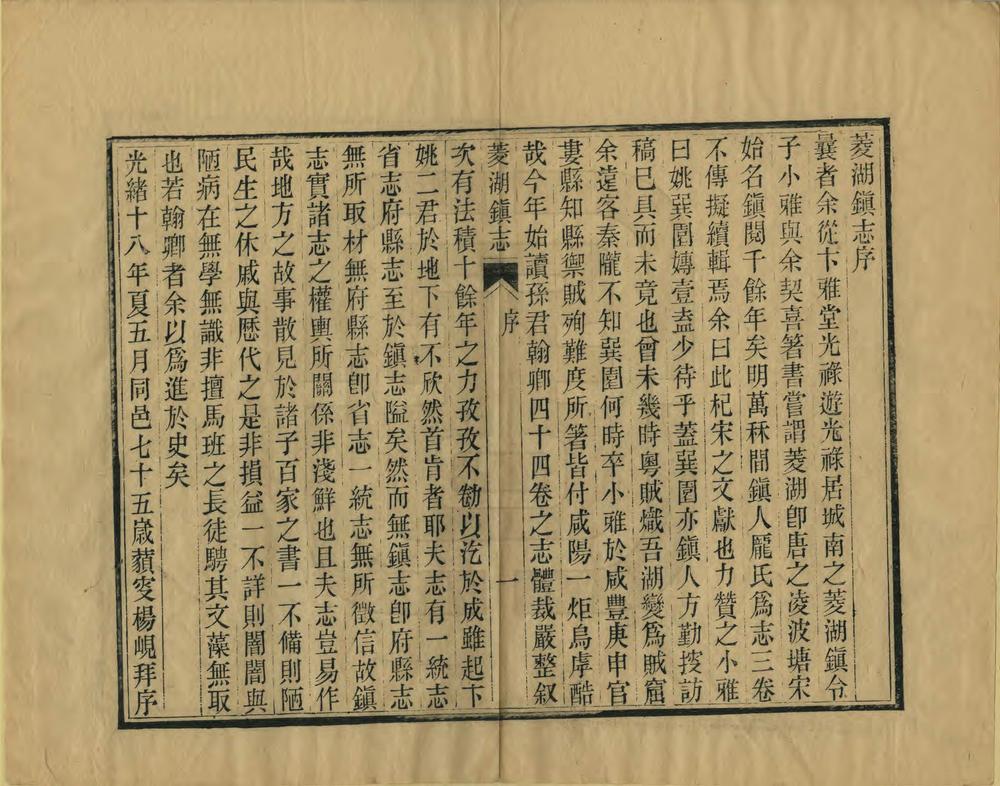 菱湖鎭志序
曩者余從卞雅堂光祿遊光祿居城南之菱湖鎭令
子小雅與余契喜箸書嘗謂菱湖卽唐之淩波塘宋
始名鎭閱千餘年矣明萬秝間鎭人龐氏爲志三卷
不傳擬續輯焉余曰此杞宋之文獻也力贊之小雅
曰姚巽園嫥壹盍少待乎蓋巽園亦鎭人方勤搜訪
稿已具而未竟也曾未幾時粵賊熾吾湖變爲賊窟
余遠客秦隴不知巽園何時卒小雅於咸豐庚申官
婁縣知縣禦賊殉難度所箸皆付咸陽一炬烏虖酷
哉今年始讀孫君翰卿四十四卷之志體裁嚴整叙
菱湖鎭志
序
一
次有法積十餘年之力孜孜不勌以汔於成雖起卞
姚二君於地下有不欣然首肯者耶夫志有一統志
省志府縣志至於鎭志隘矣然而無鎭志卽府縣志
無所取材無府縣志卽省志一統志無所徵信故鎭
志實諸志之權輿所關係非淺鮮也且夫志豈易作
哉地方之故事散見於諸子百家之書一不備則陋
民生之休戚與歷代之是非損益一不詳則闇闇與
陋病在無學無識非擅馬班之長徒騁其文藻無取
也若翰卿者余以爲進於史矣
光緒十八年夏五月同邑七十五歲藐叟楊峴拜序